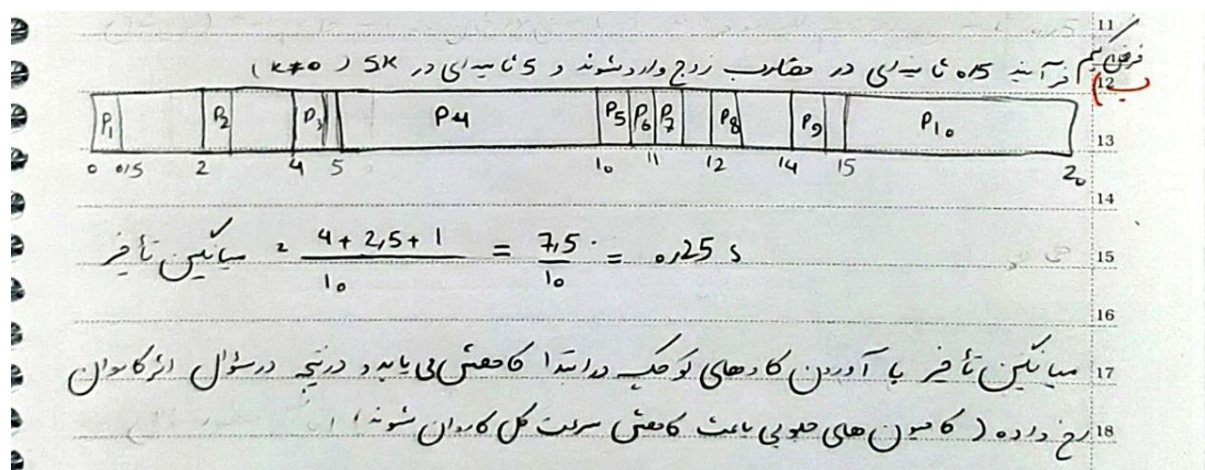 11
فرض کنیم فرآیند 0/5 ثانیه‌ای در مضارب زوج وارد شوند و 5 ثانیه‌ای در 5K (K≠0)
12 ب)
P1 P2 P3 P4 P5 P6 P7 P8 P9 P10
13
0 0/5 2 4 5 10 11 12 14 15 20
14
میانگین تأخیر = 4 + 2,5 + 1 / 10 = 7,5 / 10 = 0,25 s
15
16
میانگین تأخیر با آوردن کارهای کوچک در ابتدا کاهش می یابد و درنتیجه در سؤال اثر کاروان 17
رخ داده (کامیون های جلویی باعث کاهش سرعت کل کاروان شوند) 18